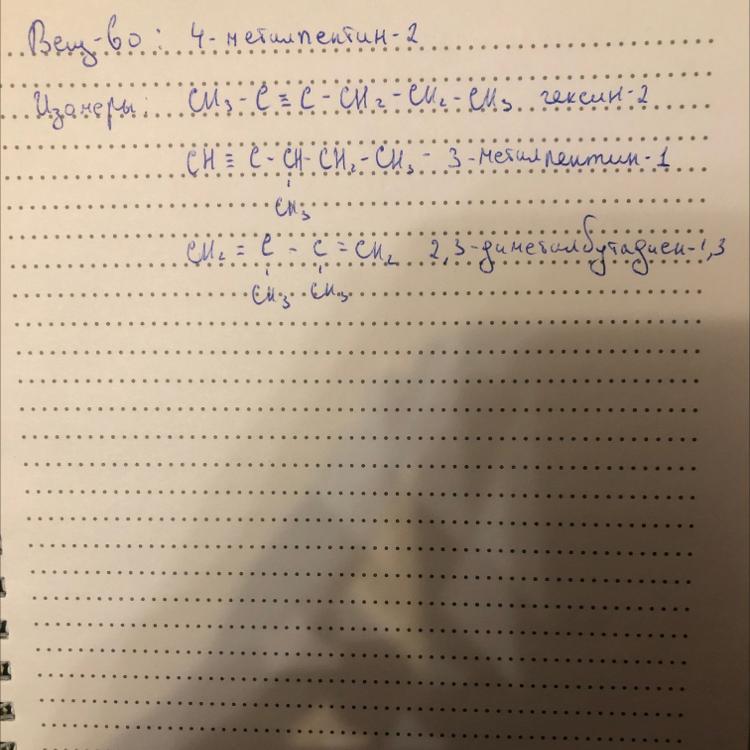 Вещ-во: 4-метилпентин-2
Изомеры: CH3-C≡C-CH2-CH2-CH3 гексин-2
CH≡C-CH-CH2-CH3 - 3-метилпентин-1
CH3
CH2=C-C=CH2 2,3-диметилбутадиен-1,3
CH3 CH3